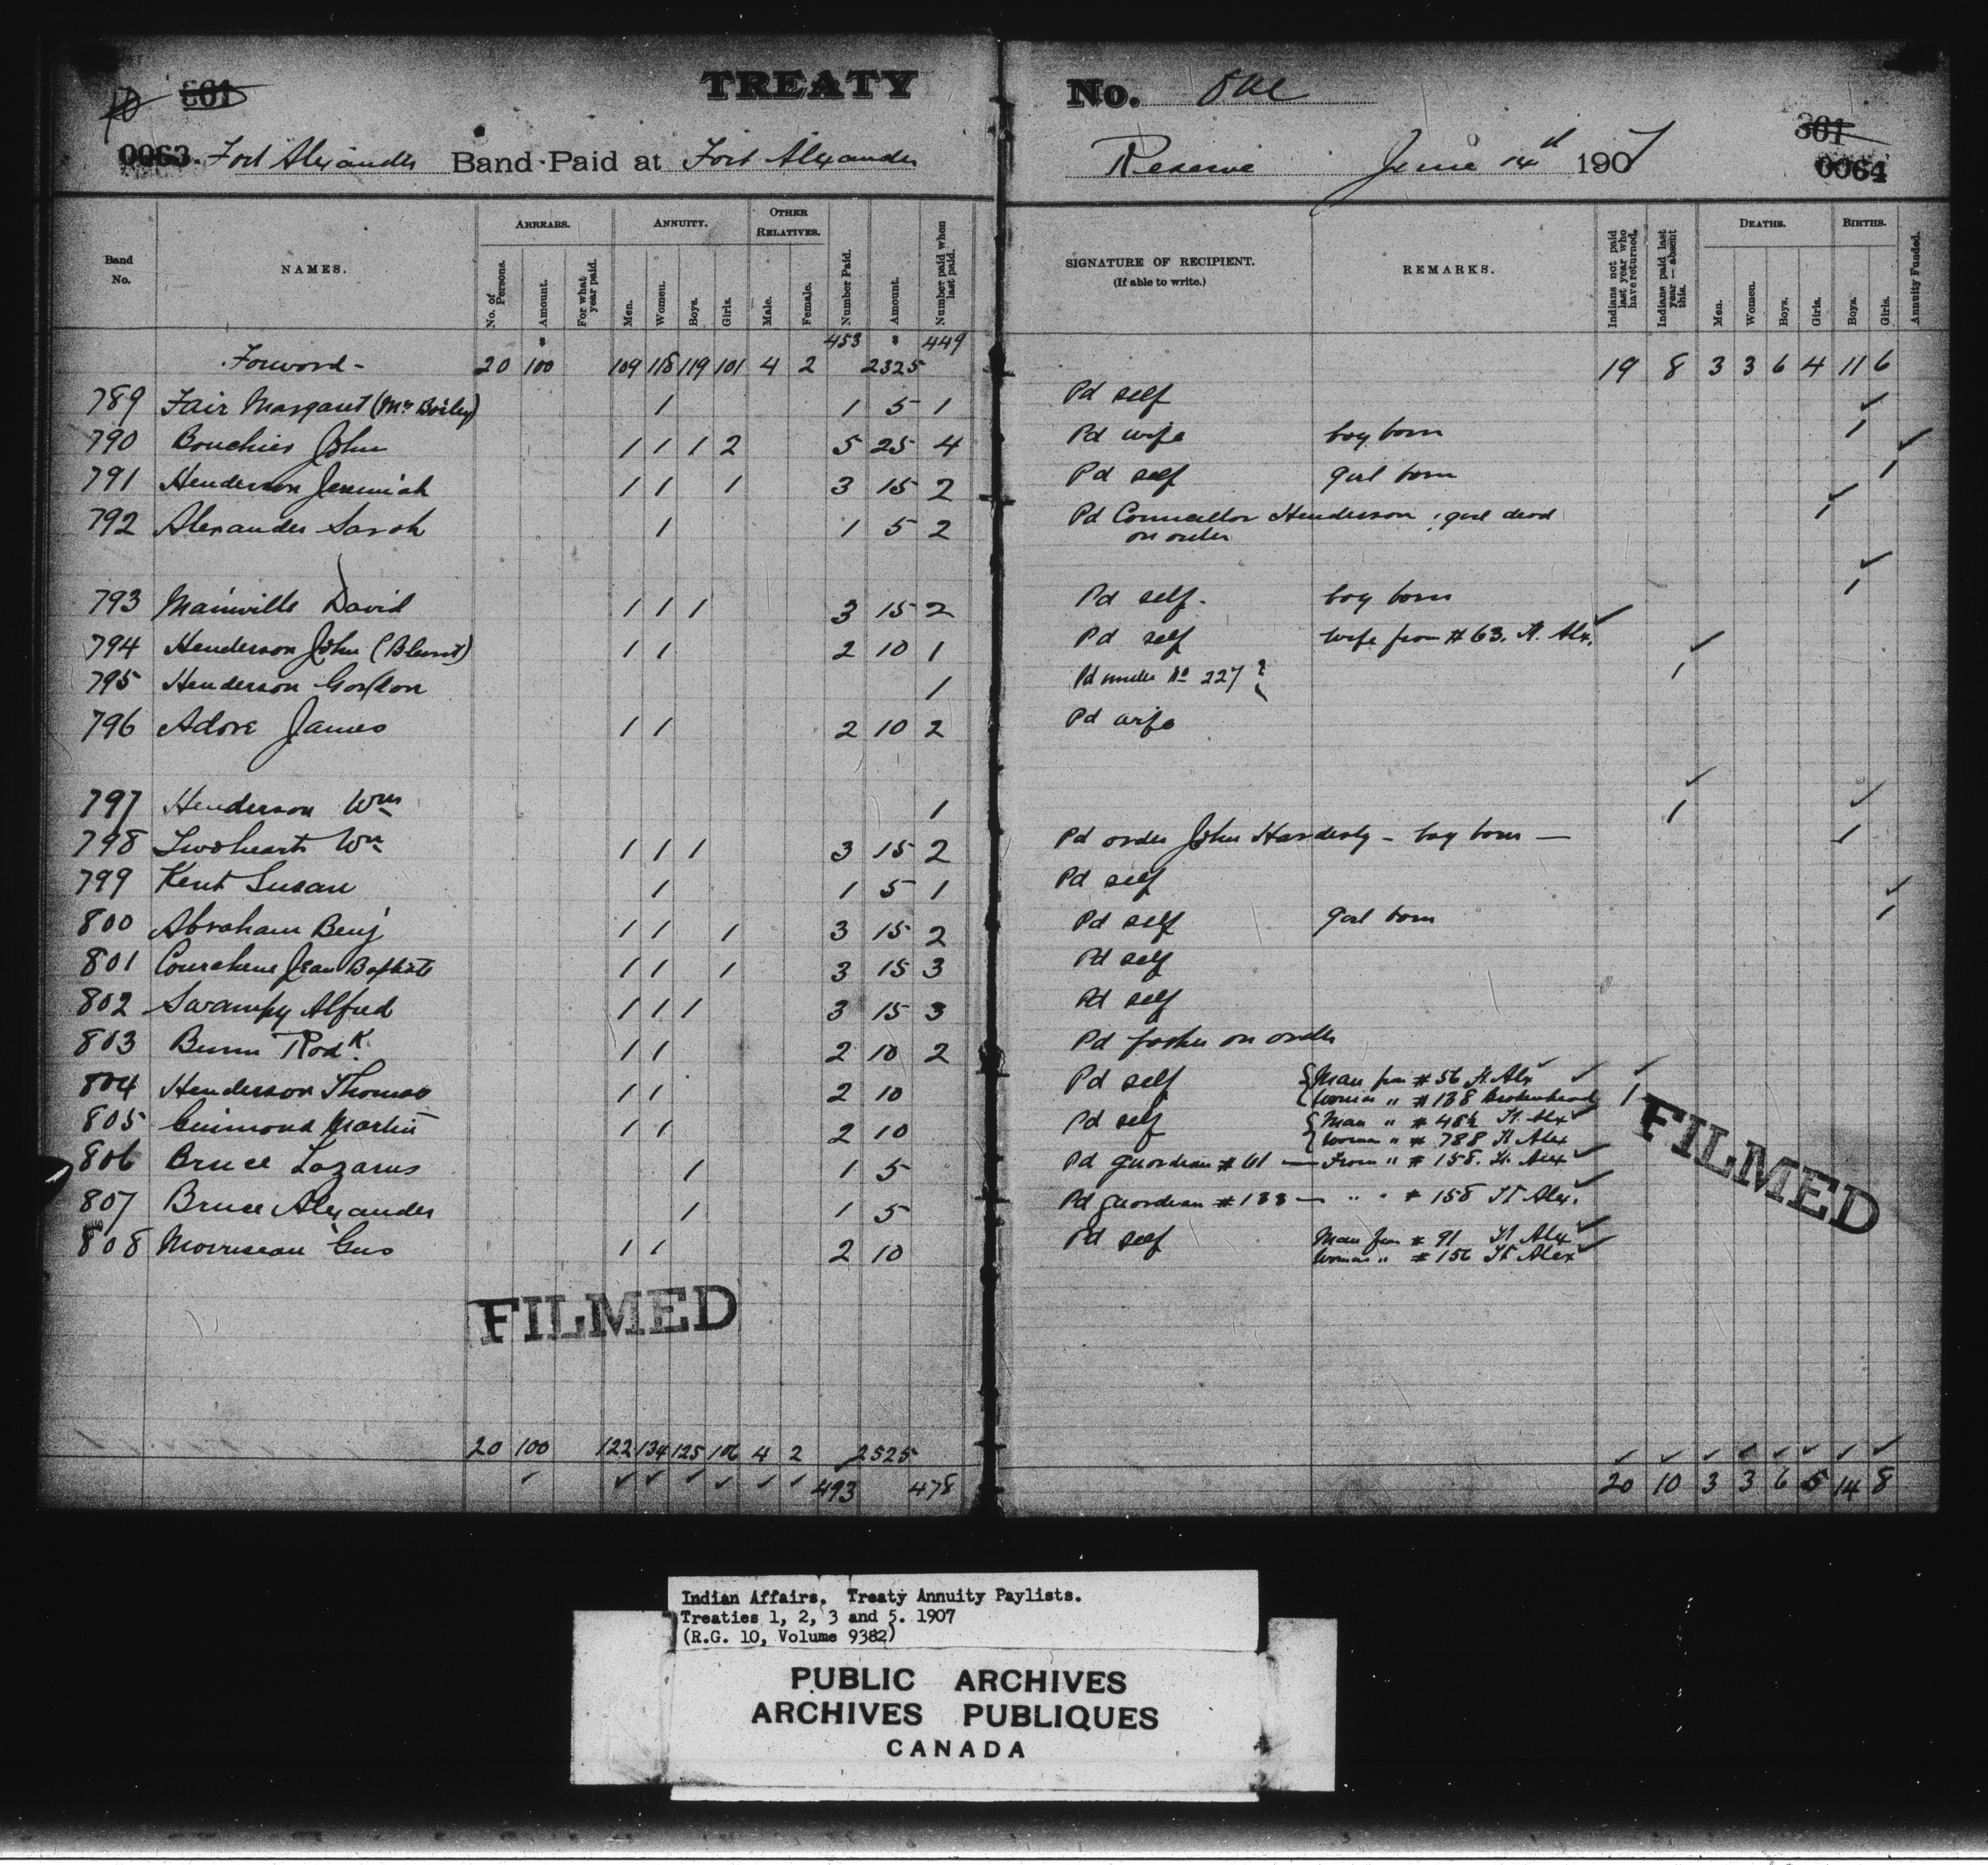 TREATY No. One
861
0063. Fort Alexander Band Paid at Fort Alexander Reserve June 14th 1907
301
0064
Band No. NAMES. ARREARS. No. of Persons. Amount. For what year paid. ANNUITY. Men. Women. Boys. Girls. OTHER RELATIVES. Male. Female. Number Paid. Amount. Number paid when last paid. SIGNATURE OF RECIPIENT. (If able to write.) REMARKS. Indians not paid last year who have returned. Indians paid last year — absent this. DEATHS. Men. Women. Boys. Girls. BIRTHS. Boys. Girls. Annuity Funded.
Forword - 20 100 109 118 119 101 4 2 453 2325 449 19 8 3 3 6 4 11 6
789 Fair Margaret (Mrs Boiley) 1 1 5 1 Pd self
790 Bouchier John 1 1 1 2 5 25 4 Pd wife boy born 1
791 Henderson Jeremiah 1 1 1 3 15 2 Pd self girl born 1
792 Alexander Sarah 1 1 5 2 Pd Councellor Henderson on order girl dead 1
793 Mainville David 1 1 1 3 15 2 Pd self. boy born 1
794 Henderson John (Blunt) 1 1 2 10 1 Pd self wife from # 63. Ft. Alx.
795 Henderson Gordon 1 Pd under No 227 1
796 Adore James 1 1 2 10 2 Pd wife
797 Henderson Wm 1 1
798 Twohearts Wm 1 1 1 3 15 2 Pd order John Hardesty - boy born — 1
799 Kent Susan 1 1 5 1 Pd self
800 Abraham Benj 1 1 1 3 15 2 Pd self girl born 1
801 Courchene Jean Baptiste 1 1 1 3 15 3 Pd self
802 Swampy Alfred 1 1 1 3 15 3 Pd self
803 Bunn Rodk. 1 1 2 10 2 Pd father on order
804 Henderson Thomas 1 1 2 10 Pd self Man from # 56 Ft Alx
Woman " # 138 Brokenhead 1
805 Guimond Martin 1 1 2 10 Pd self Man " # 48½ Ft. Alx
Woman " # 788 Ft Alex
806 Bruce Lazarus 1 1 5 Pd guardian # 61 — From " # 158. Ft. Alex
807 Bruce Alexander 1 1 5 Pd guardian # 133 — " " # 158 Ft Alex.
808 Morriseau Gus 1 1 2 10 Pd self Man from # 91 Ft Alex
Woman " # 156 Ft Alex
FILMED
FILMED
20 100 122 134 125 106 4 2 2525
493 478 20 10 3 3 6 5 14 8
Indian Affairs. Treaty Annuity Paylists.
Treaties 1, 2, 3 and 5. 1907
(R.G. 10, Volume 9382)
PUBLIC ARCHIVES
ARCHIVES PUBLIQUES
CANADA